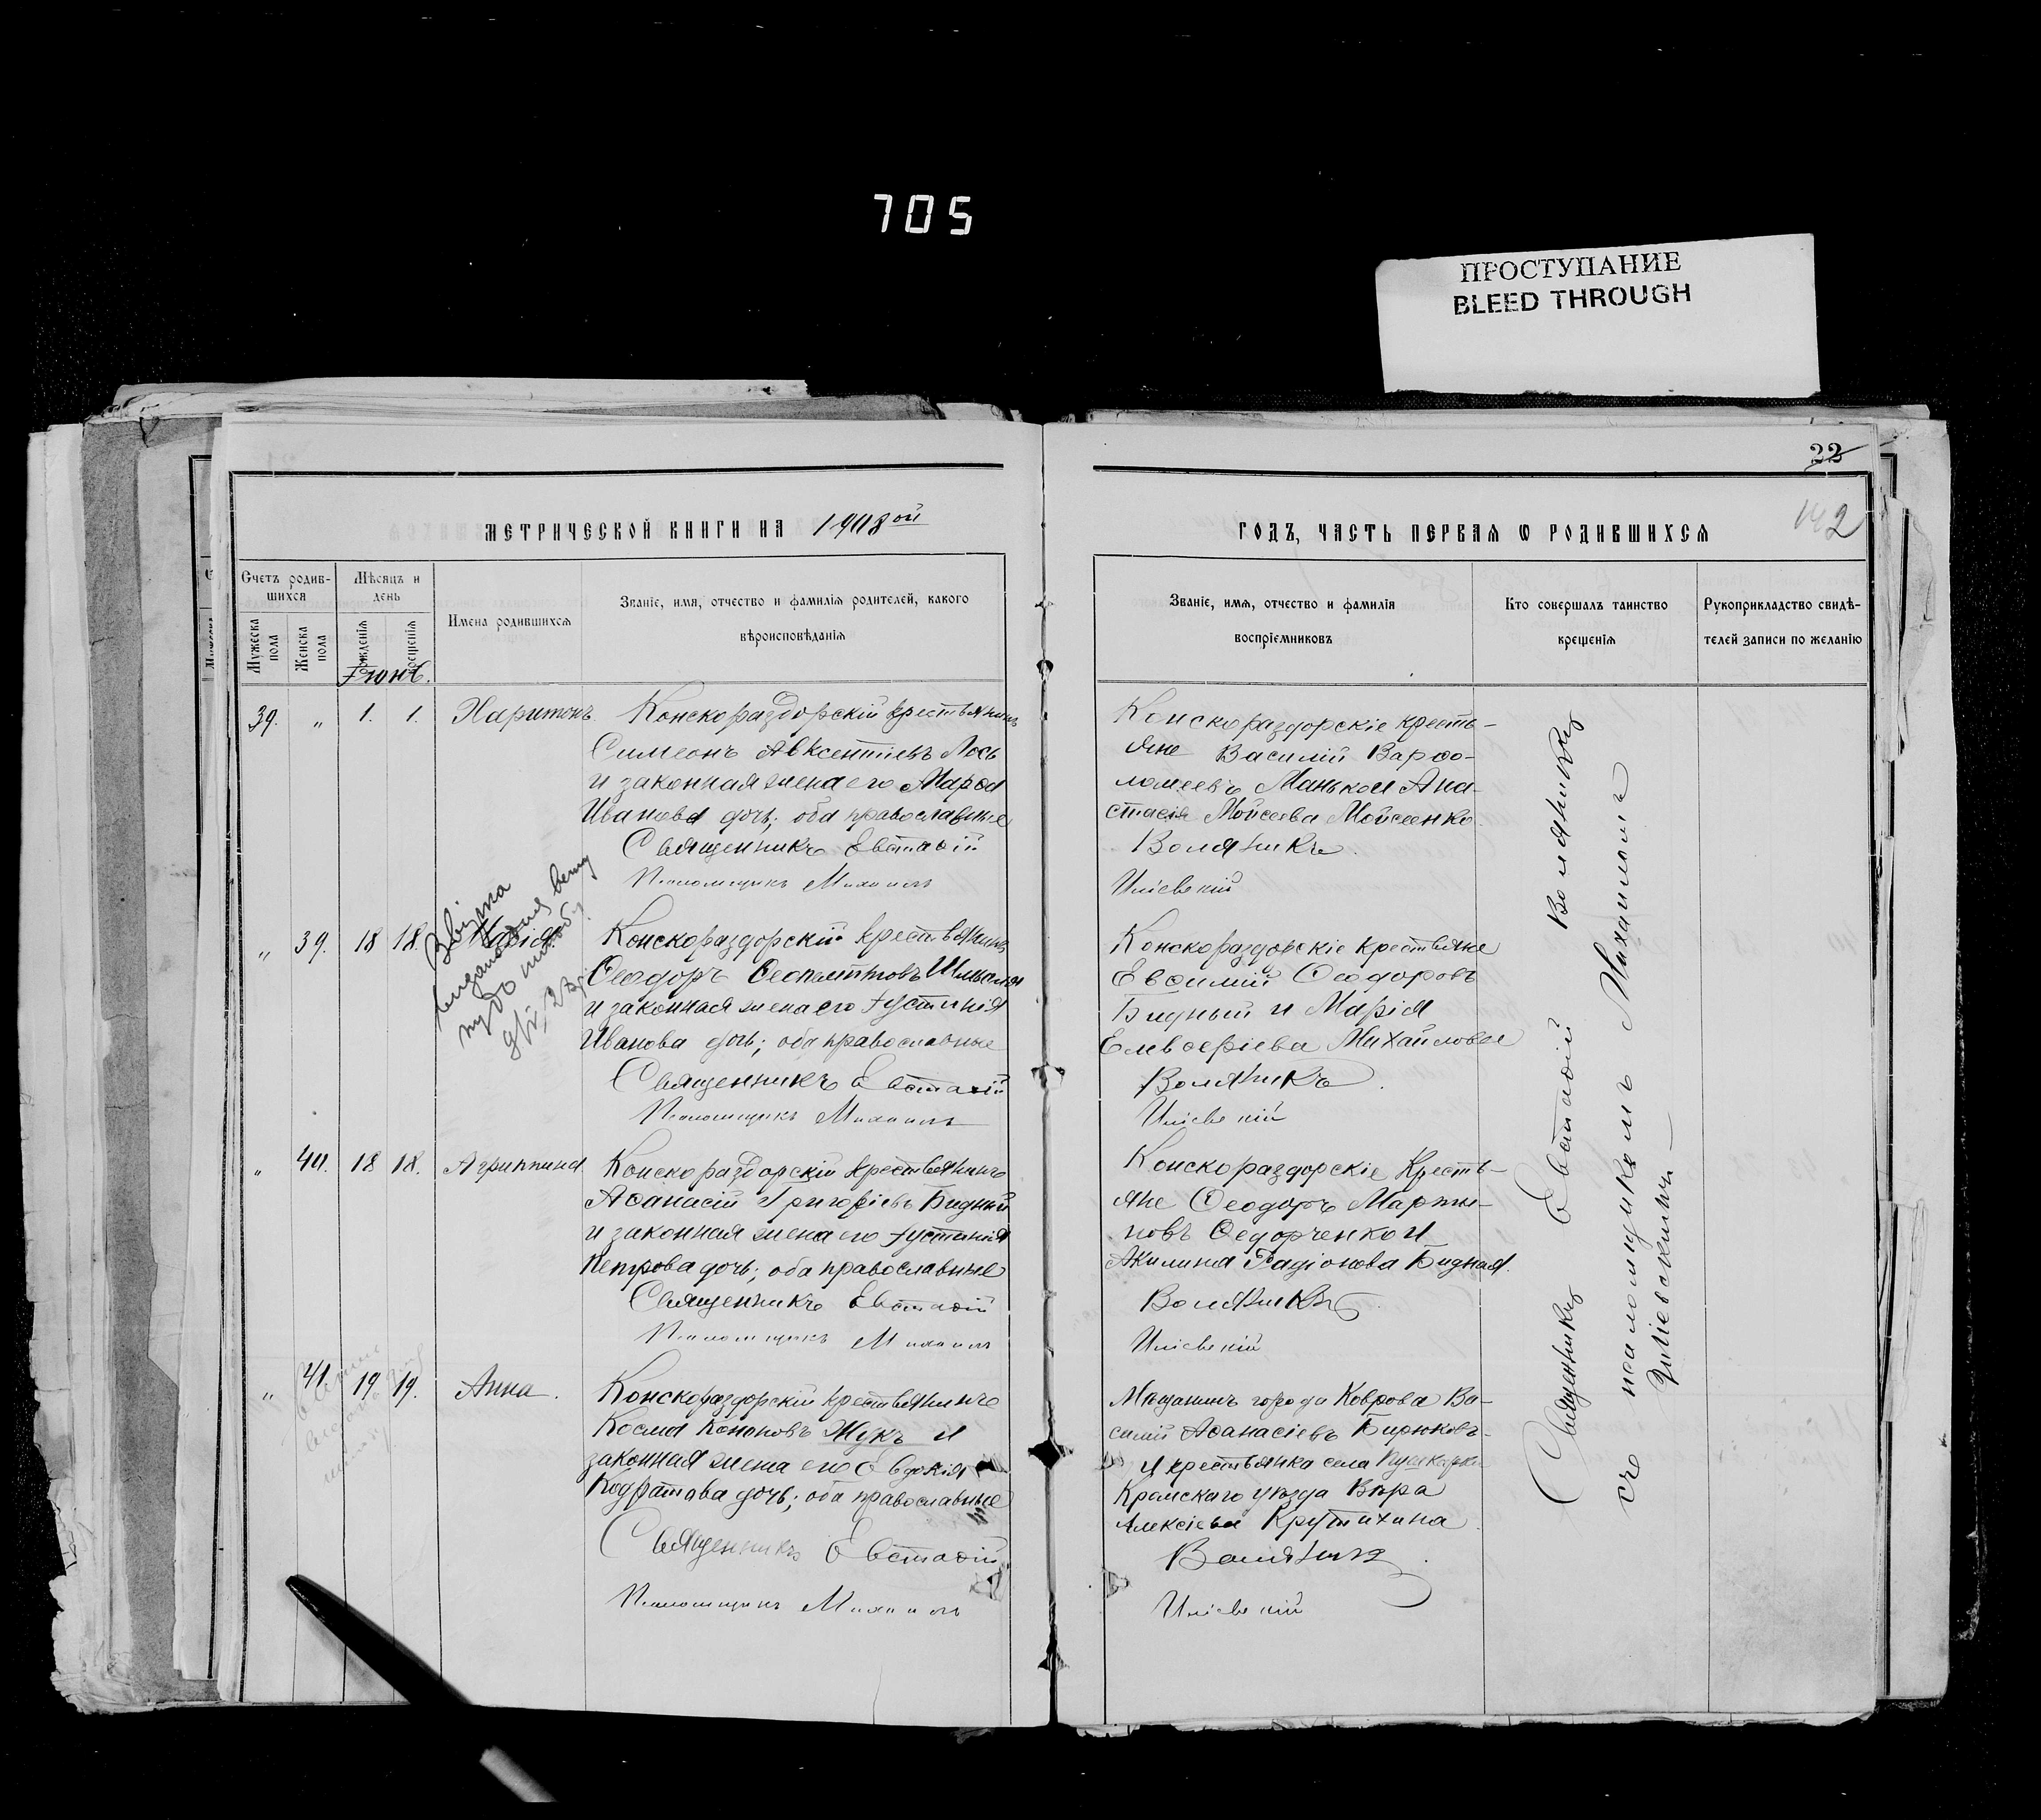 705
ПРОСТУПАНИЕ
BLEED THROUGH
22
142
МЕТРИЧЕСКОЙ КНИГИ НА 1908ой
ГОДЪ, ЧАСТЬ ПЕРВАЯ Ѡ РОДИВШИХСЯ
Счетъ родив-
шихся
Мѣсяцъ и
день
Имена родившихся
Званіе, имя, отчество и фамилія родителей, какого
вѣроисповѣданія
Мужеска
пола
Женска
пола
рожденія
крещенія
Званіе, имя, отчество и фамилія
воспріемниковъ
Кто совершалъ таинство
крещенія
Рукоприкладство свидѣ-
телей записи по желанію
Іюнь.
39. „ 1. 1. Харитонъ
Конскораздорскій крестьянинъ
Симеонъ Авксентіевъ Лось
и законная жена его Марѳа
Иванова дочь; оба православные
Священникъ Евстаѳій
Псаломщикъ Михаилъ
Конскораздорскіе кресть-
яне Василій Варѳо-
ломеевъ Манько и Ана-
стасія Мойсеева Мойсеенко
Воляникъ
Иліевскій
„ 39. 18 18. Марія
Конскораздорскій крестьянинъ
Ѳеодоръ
и законная жена его Іустинія
Иванова дочь; оба православные
Священникъ Евстаѳій
Псаломщикъ Михаилъ
Конскораздорскіе крестьяне
Евѳимій Ѳеодоровъ
Бидный и Марія
Елевѳеріева Михайлова
Воляникъ
Иліевскій
„ 40. 18 18. Агриппина
Конскораздорскій крестьянинъ
Аѳанасій Григоріевъ Бидный
и законная жена его Іустинія
Петрова дочь; оба православные
Священникъ Евстаѳій
Псаломщикъ Михаилъ
Конскораздорскіе Кресть-
яне Ѳеодоръ Марти-
новъ Ѳедорченко и
Акилина Радіонова Бидная.
Воляникъ
Иліевскій
„ 41. 19 19. Анна.
Конскораздорскій крестьянинъ
Косма Кононовъ Жукъ и
законная жена его Евдокія
Кодратова дочь; оба православные
Священникъ Евстаѳій
Псаломщикъ Михаилъ
Мѣщанинъ города Коврова Ва-
силій Аѳанасіевъ Бирюковъ
и крестьянка села
Кромскаго уѣзда Вѣра
Алексіева Крутихина
Воляникъ
Иліевскій
Священникъ Евстаѳій Волянikъ
съ псаломщикомъ Михаиломъ
Иліевскимъ